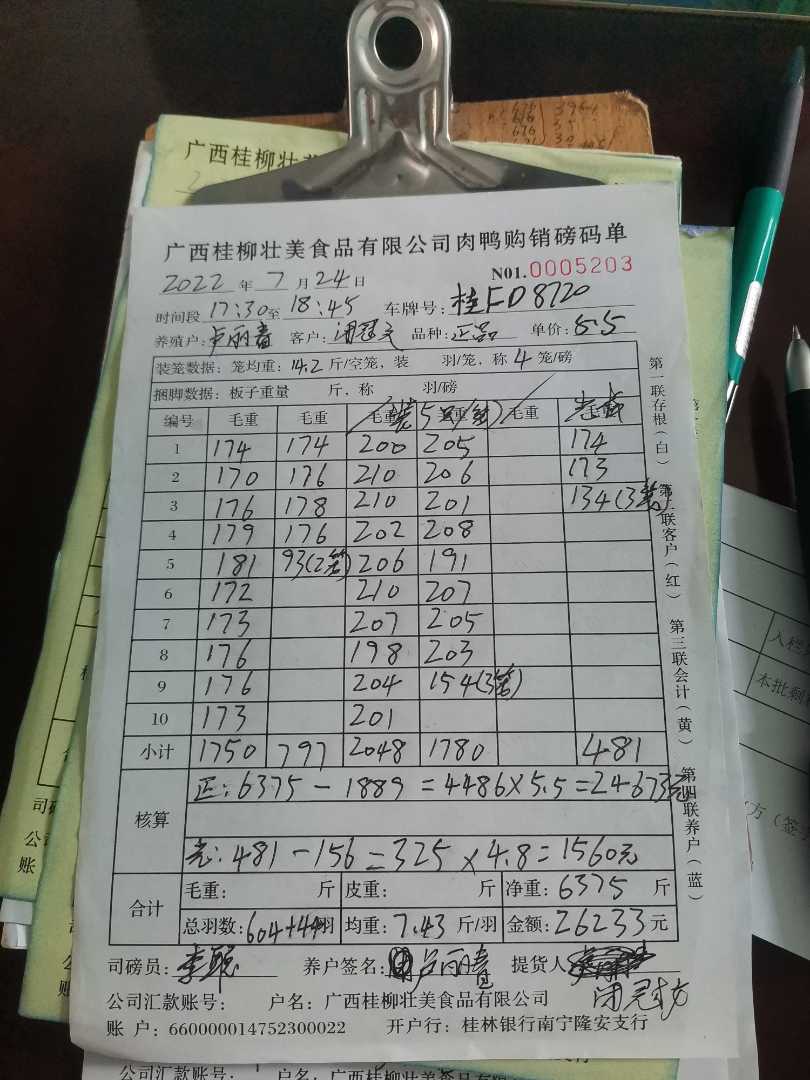 广西桂柳壮
广西桂柳壮美食品有限公司肉鸭购销磅码单
2022 年 7 月 24 日 N01.0005203
时间段 17:30 至 18:45 车牌号: 桂FD8720
养殖户: 卢丽春 客户: 品种: 正品 单价: 5.5
装笼数据: 笼均重: 14.2 斤/空笼, 装 羽/笼, 称 4 笼/磅
捆脚数据: 板子重量 斤, 称 羽/磅
编号 毛重 毛重 毛重 毛重 毛重
(装5只/笼)
1 174 174 200 205 174
2 170 176 210 206 173
3 176 178 210 201 134(3笼)
4 179 176 202 208
5 181 93(2笼) 206 191
6 172 210 207
7 173 207 205
8 176 198 203
9 176 204 154(3笼)
10 173 201
小计 1750 797 2048 1780 481
核算
正: 6375 - 1889 = 4486 × 5.5 = 24673元
光: 481 - 156 = 325 × 4.8 = 1560元
合计 毛重: 斤 皮重: 斤 净重: 6375 斤
总羽数: 604+44羽 均重: 7.43 斤/羽 金额: 26233 元
司磅员: 李聪 养户签名: 卢丽春 提货人
公司汇款账号: 户名: 广西桂柳壮美食品有限公司
账 户: 660000014752300022 开户行: 桂林银行南宁隆安支行
第一联存根(白) 第二联客户(红) 第三联会计(黄) 第四联养户(蓝)
入栏
本批剩
方(签
司磅
公司
账
公司汇款账号: 户名: 广西桂柳壮美食品有限公司